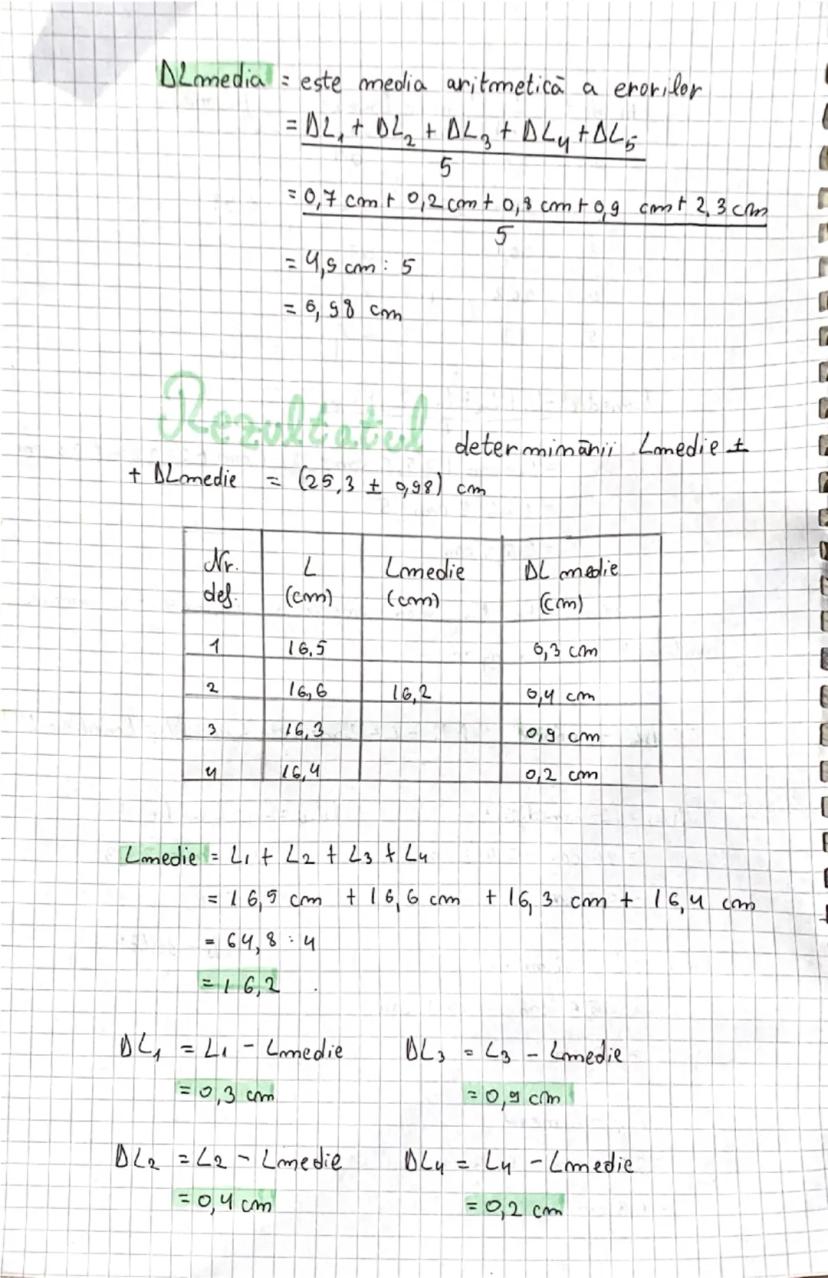 DLmedia = este media aritmetică a erorilor
= DL1 + DL2 + DL3 + DL4 + DL5
5
= 0,7 cm + 0,2 cm + 0,8 cm + 0,9 cm + 2,3 cm
5
= 4,9 cm : 5
= 0,98 cm
Rezultatul determinării Lmedie ±
+ DLmedie = (25,3 ± 0,98) cm
Nr. det. L (cm) Lmedie (cm) DL medie (cm)
1 16,5 0,3 cm
2 16,6 16,2 0,4 cm
3 16,3 0,9 cm
4 16,4 0,2 cm
Lmedie = L1 + L2 + L3 + L4
= 16,5 cm + 16,6 cm + 16,3 cm + 16,4 cm
= 64,8 : 4
= 16,2
DL1 = L1 - Lmedie DL3 = L3 - Lmedie
= 0,3 cm = 0,9 cm
DL2 = L2 - Lmedie DL4 = L4 - Lmedie
= 0,4 cm = 0,2 cm